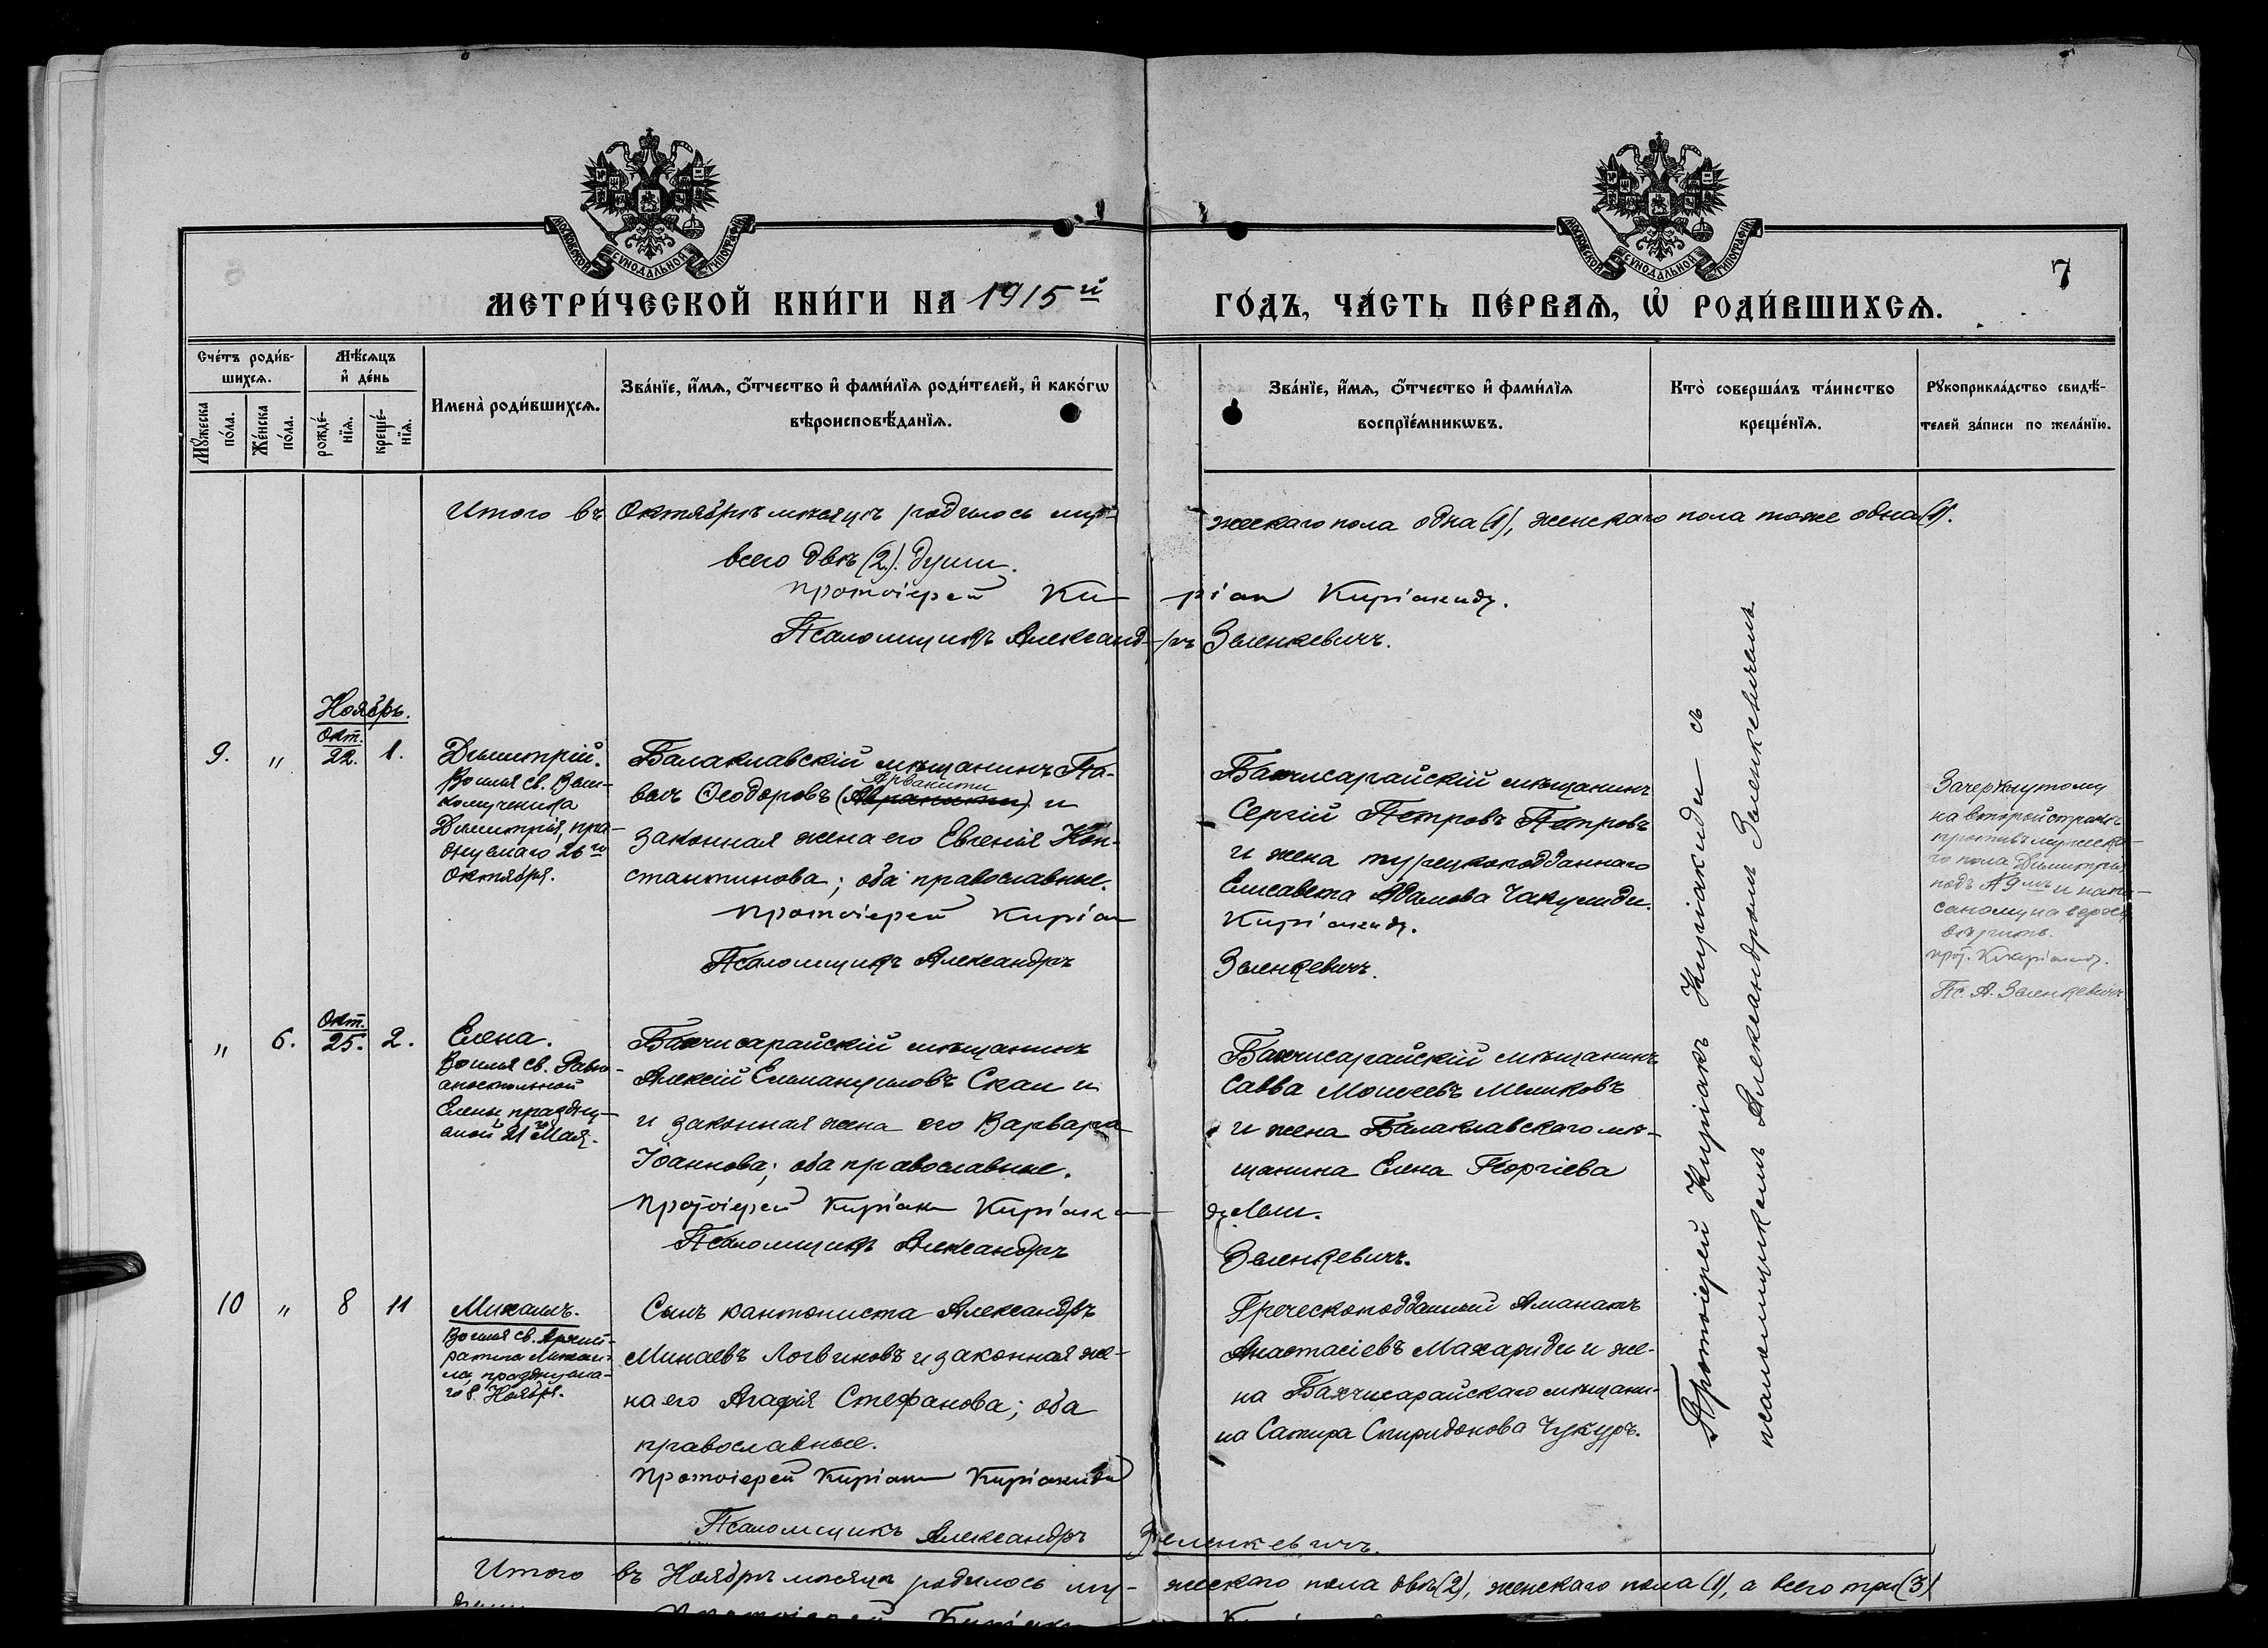 МОСКОВСКОЙ СѴНОДАЛЬНОЙ ТИПОГРАФІИ
МОСКОВСКОЙ СѴНОДАЛЬНОЙ ТИПОГРАФІИ
7
МЕТРИ́ЧЕСКОЙ КНИ́ГИ НА 1915й ГО́ДЪ, ЧА́СТЬ ПЕ́РВАѦ, Ѡ҆ РОДИ́ВШИХСѦ.
Сче́тъ роди́в-
шихсѧ.
Мѣ́сѧцъ
и҆ де́нь
Мꙋ́жеска
по́ла.
Же́нска
по́ла.
рожде́-
нїѧ.
креще́-
нїѧ.
Имена̀ роди́вшихсѧ.
Зва́нїе, и҆́мѧ, ѻ҆́тчество и҆ фами́лїѧ роди́телей, и҆ како́гѡ
вѣроисповѣ́данїѧ.
Зва́нїе, и҆́мѧ, ѻ҆́тчество и҆ фами́лїѧ
воспрїе́мникѡвъ.
Кто̀ соверша́лъ та́инство
креще́нїѧ.
Рꙋкоприкла́дство свидѣ́-
телей за́писи по жела́нїю.
Итого въ Октябрѣ мѣсяцѣ родилось му-
жескаго пола одна (1), женскаго пола тоже одна (1).
всего двѣ (2). души.
Протоіерей Ки-
ріак Киріакиди.
Псаломщикъ Александ-
ръ Зеленкевичъ.
Ноябрь.
9. " Окт. 22. 1.
Димитрій.
Во имя св. Вели-
комученика
Димитрія, пра-
днуемаго 26го
Октября.
Балаклавскій мѣщанинъ Па-
велъ Ѳеодоровъ (Авранити) и
Арванити
законная жена его Евгенія Кон-
стантинова; оба православные.
Протоіерей Киріак
Псаломщикъ Александръ
Бахчисарайскій мѣщанинъ
Сергій Петровъ Петровъ
и жена турецкоподданнаго
Елисавета Адамова Чакулиди.
Киріакиди.
Зеленкевичъ.
Зачеркнутому
на второй страницѣ
противъ мужеска-
го пола Димитрія
подъ № 9мъ и напи-
саному на верху
вѣрить.
прот. Киріакиди.
Пс. А. Зеленкевичъ
" 6. Окт. 25. 2.
Елена.
Во имя св. Равно-
апостольной
Елены празднуе-
мой 21го Мая.
Бахчисарайскій мѣщанинъ
Алексій Еммануиловъ Скаи и
и законная жена его Варвара
Іоаннова; оба православные.
Протоіерей Киріак Киріаки-
Псаломщикъ Александръ
Бахчисарайскій мѣщанинъ
Савва Моисеевъ Мешковъ
и жена Балаклавскаго мѣ-
щанина Елена Георгіева
Зеленкевичъ.
10 " 8 11
Михаилъ.
Во имя св. Архист-
ратига Михаи-
ла, празднуема-
го 8 Ноября.
Сынъ кантониста Александръ
Минаевъ Логвиновъ и законная же-
на его Агафія Стефанова; оба
православные.
Протоіерей Киріак Киріакиди
Псаломщикъ Александръ
Зеленкевичъ.
Греческоподданный Аманатъ
Анастасіевъ Махариди и же-
на Бахчисарайскаго мѣщани-
на Сатира Спиридонова Чукуръ.
Протоіерей Киріакъ Киріакиди съ
псаломщикомъ Александромъ Зеленкевичемъ
Итого въ Ноябрѣ мѣсяцѣ родилось му-
жескаго пола двѣ (2), женскаго пола (1), а всего три (3)